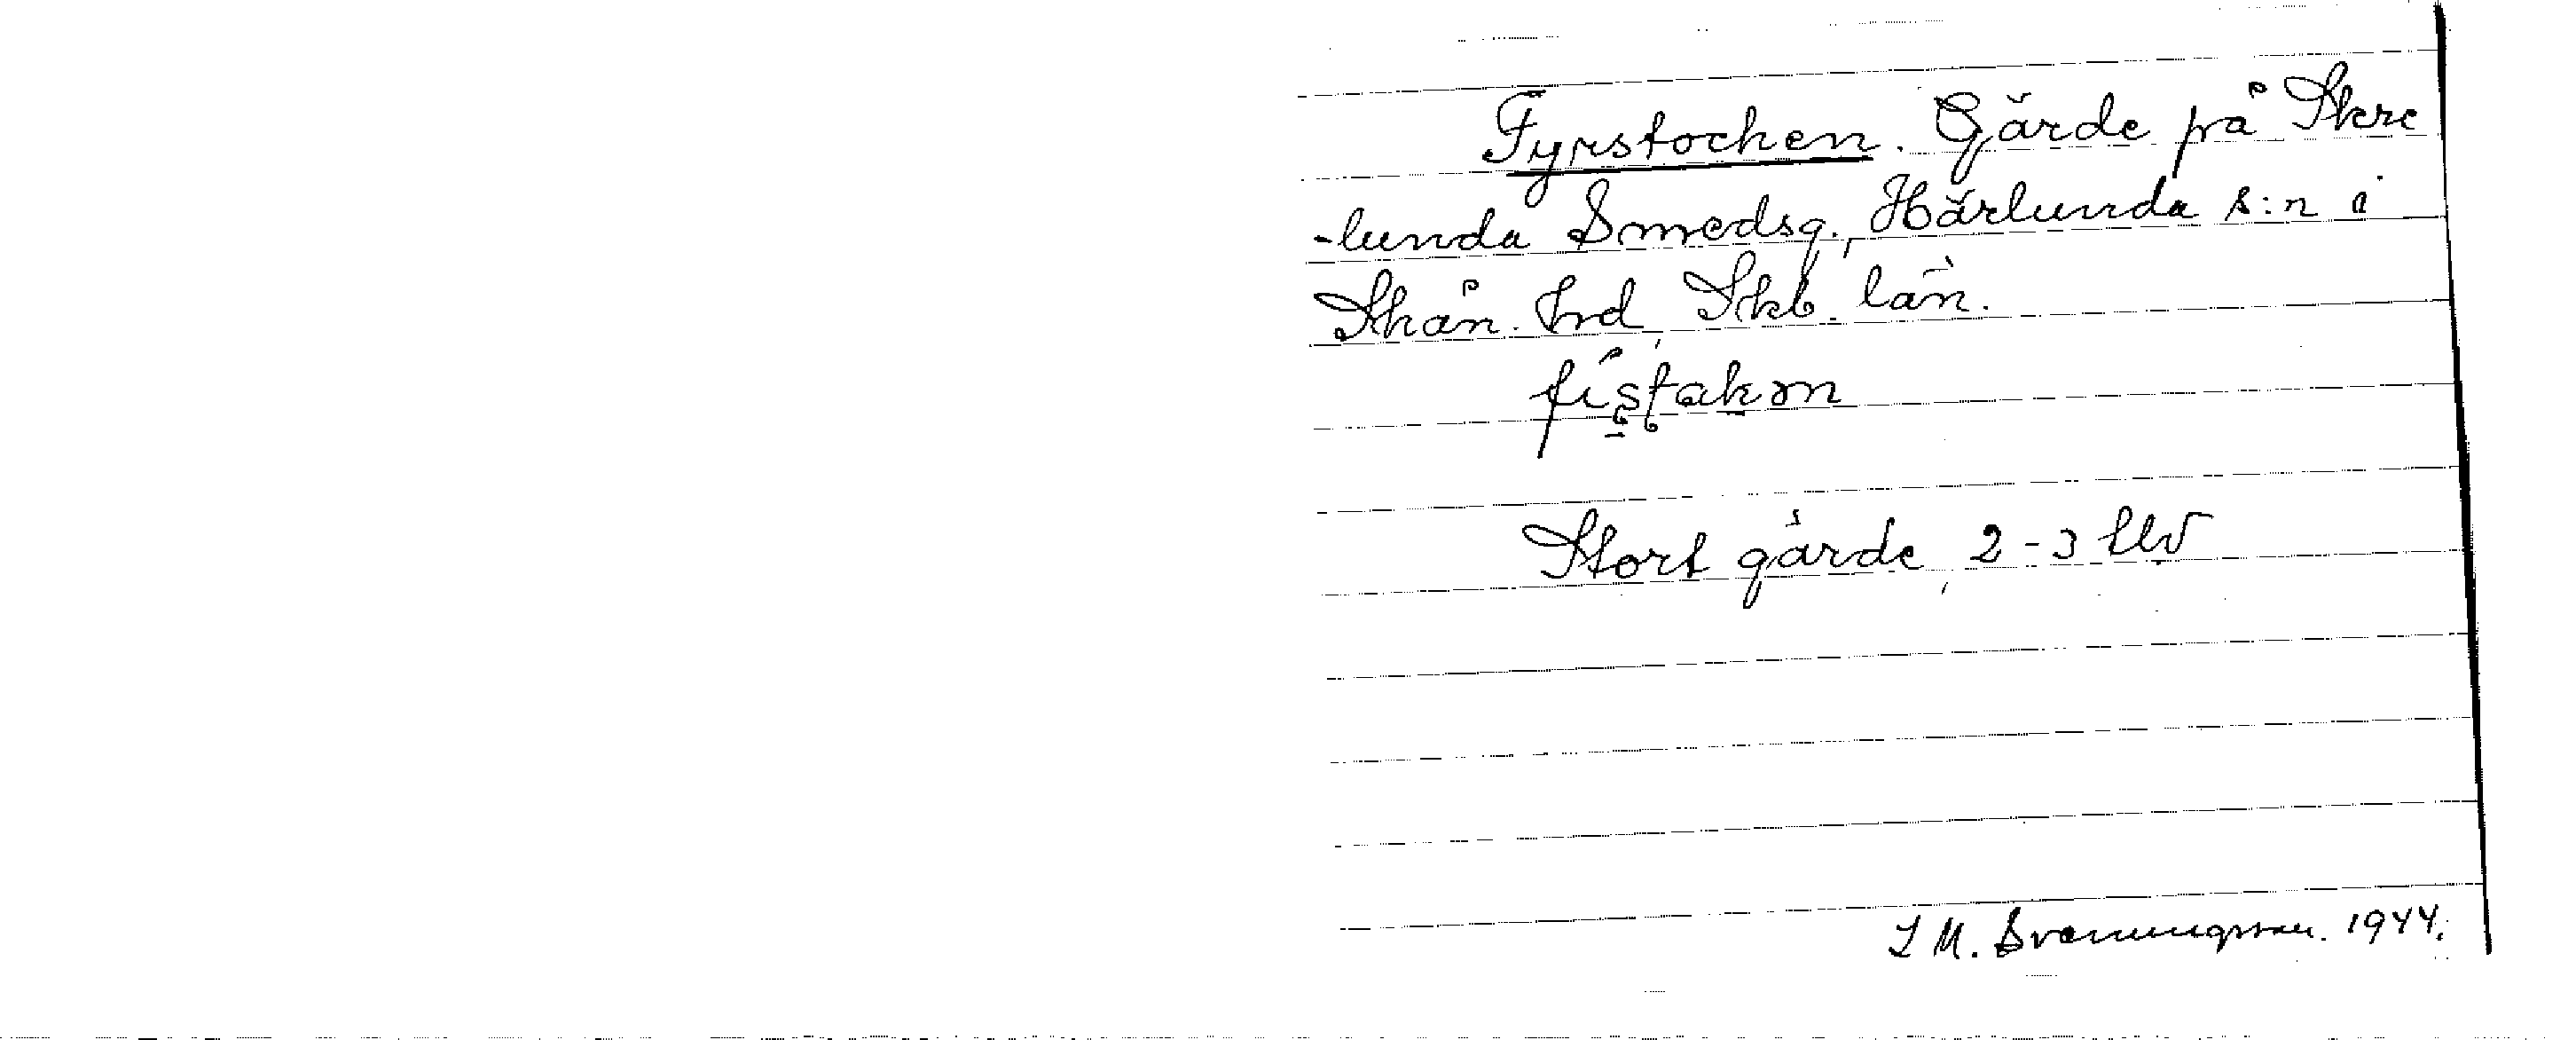 Fyrstocken. Gärde på Skre
-lunda Smedsg., Härlunda s:n i
Skån. hrd, Skb. län.
Stort gärde, 2-3
S M. Svenungsson. 1944.